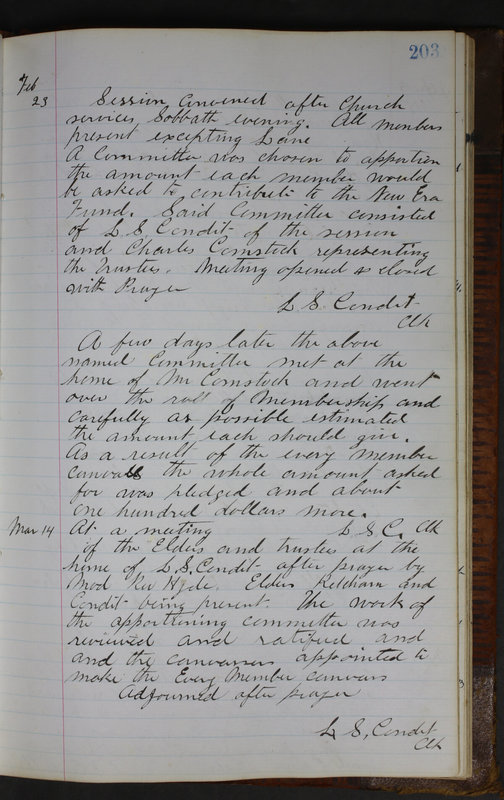 203
Feb
23
Session, convened after Church
services, Sobbath evening. All members
present excepting Lane
A Committee was chosen to apportion
the amount each member would
be asked to contribute to the New Era
Fund. Said Committee consisted
of L S Condit of the session
and Charles Comstock representing
the Trustees. Meeting opened & closed
with Prayer
L S. Condit
Clk
A few days later the above
named Committee met at the
home of Mr Comstock and went
over the roll of Membership and
carefully as possible estimated
the amount each should give.
As a result of the every member
canvass the whole amount asked
for was pledged and about
one hundred dollars more.
L S C. Clk
Mar 14
At a meeting
of the Elders and trustees at the
home of L S. Condit after prayer by
Mod Rev Hyde. Elders Ketcham and
Condit being present. The work of
the apportioning committee was
reviewed and ratified and
and the canvassers appointed to
make the Every Member canvass
Adjourned after prayer
L S, Condit
Clk